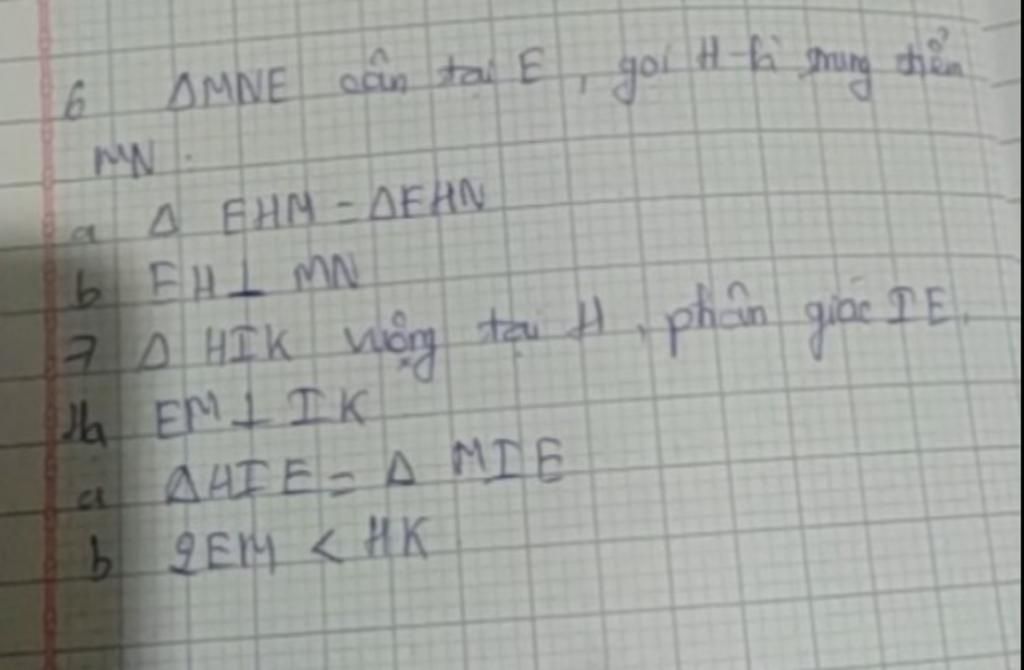 6 ΔMNE cân tại E, gọi H là trung điểm
MN.
a Δ EHM = ΔEHN
b EH⊥ MN
7 Δ HIK vuông tại H, phân giác IE.
EM⊥ IK
a ΔHIE = Δ MIE
b 2EM < HK